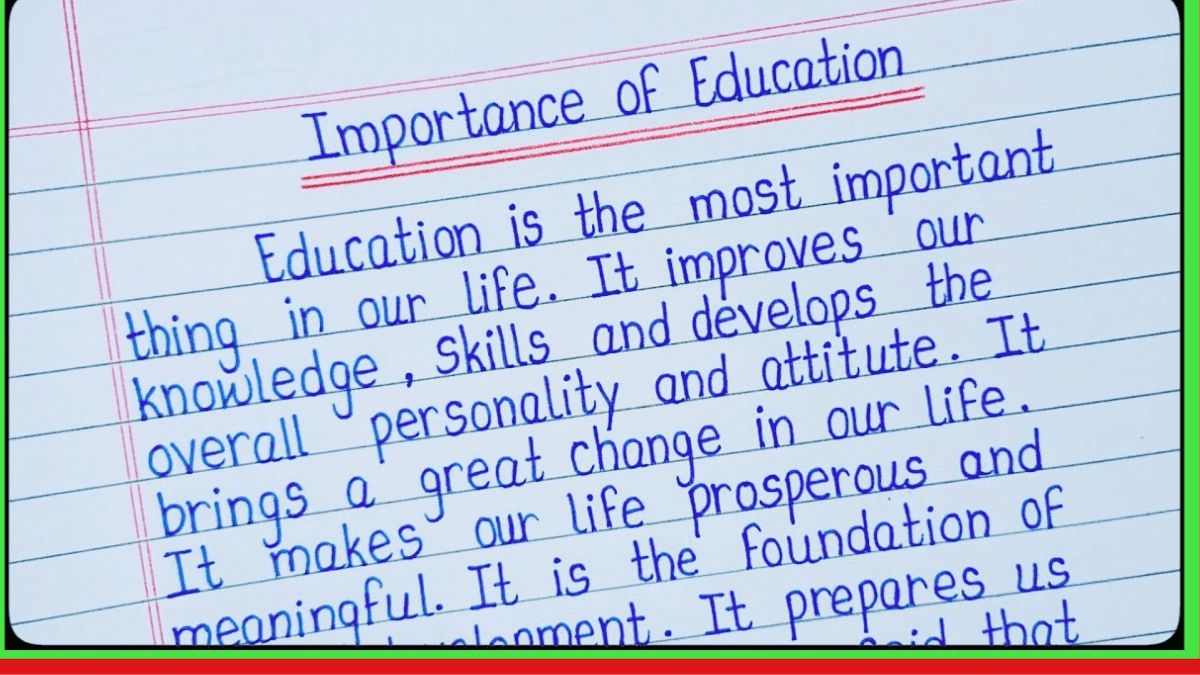 Importance of Education
Education is the most important
thing in our life. It improves our
knowledge, Skills and develops the
overall personality and attitute. It
brings a great change in our life.
It makes our life prosperous and
meaningful. It is the foundation of
It prepares us
said that